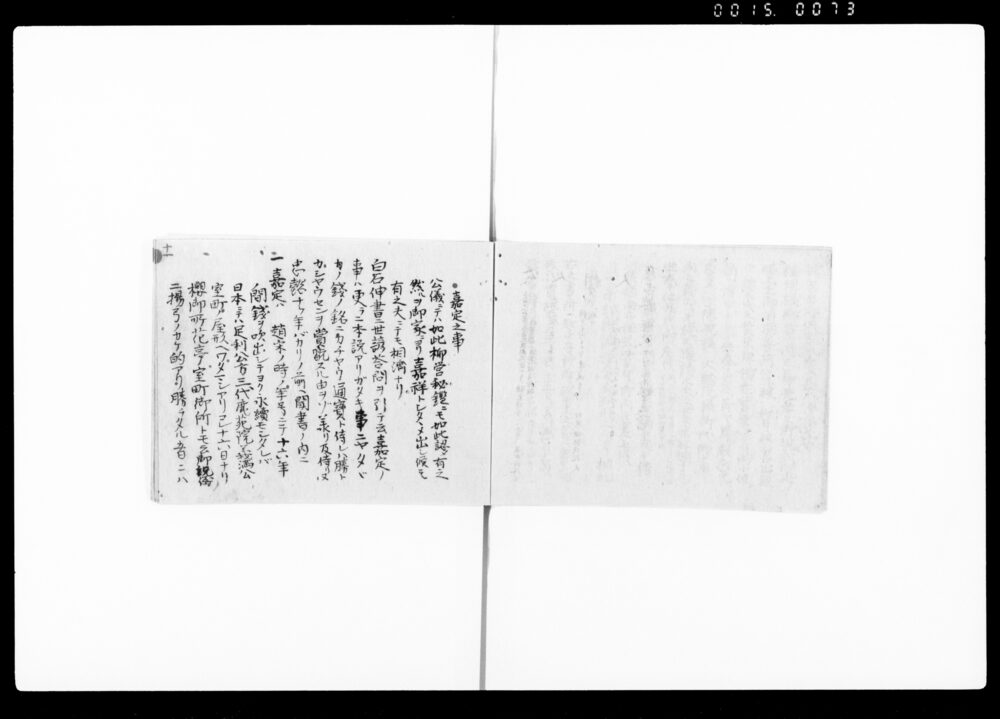 0015. 0073
嘉定之事
公儀ニテハ如此柳営秘鑑ニモ如此認有之
然ヲ御家ヨリ嘉祥トシタヽメ出し候モ
有之夫ニテモ相済ナリ
白石伸書ニ世諺答問ヲ引テ云嘉定ノ
事ハ更ニ本説アリガタキ事ニヤタヽ
カノ錢ノ銘ニカチヤウ通寳ト侍レハ勝ト
カシヤウセンヲ賞翫スル由ヲソ羨リ及侍り又
ノ内ニ
一 嘉定ハ 趙宋ノ時ノ年号ニテ十六年
ノ間錢ヲ吹出シテヨク永續モシタレバ
日本ニテハ足利公方三代鹿苑院義満公
室町ノ屋形ヘワタマシアリコレ十六日ナリ
櫻御所花亭ノ室町御所トモ云御親俗
ニ揚弓ノカケ的アリ勝タル者ニハ
十一